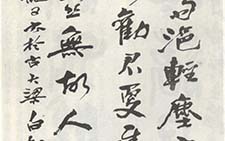 浥輕塵
勸君更
無故人
於古大梁白